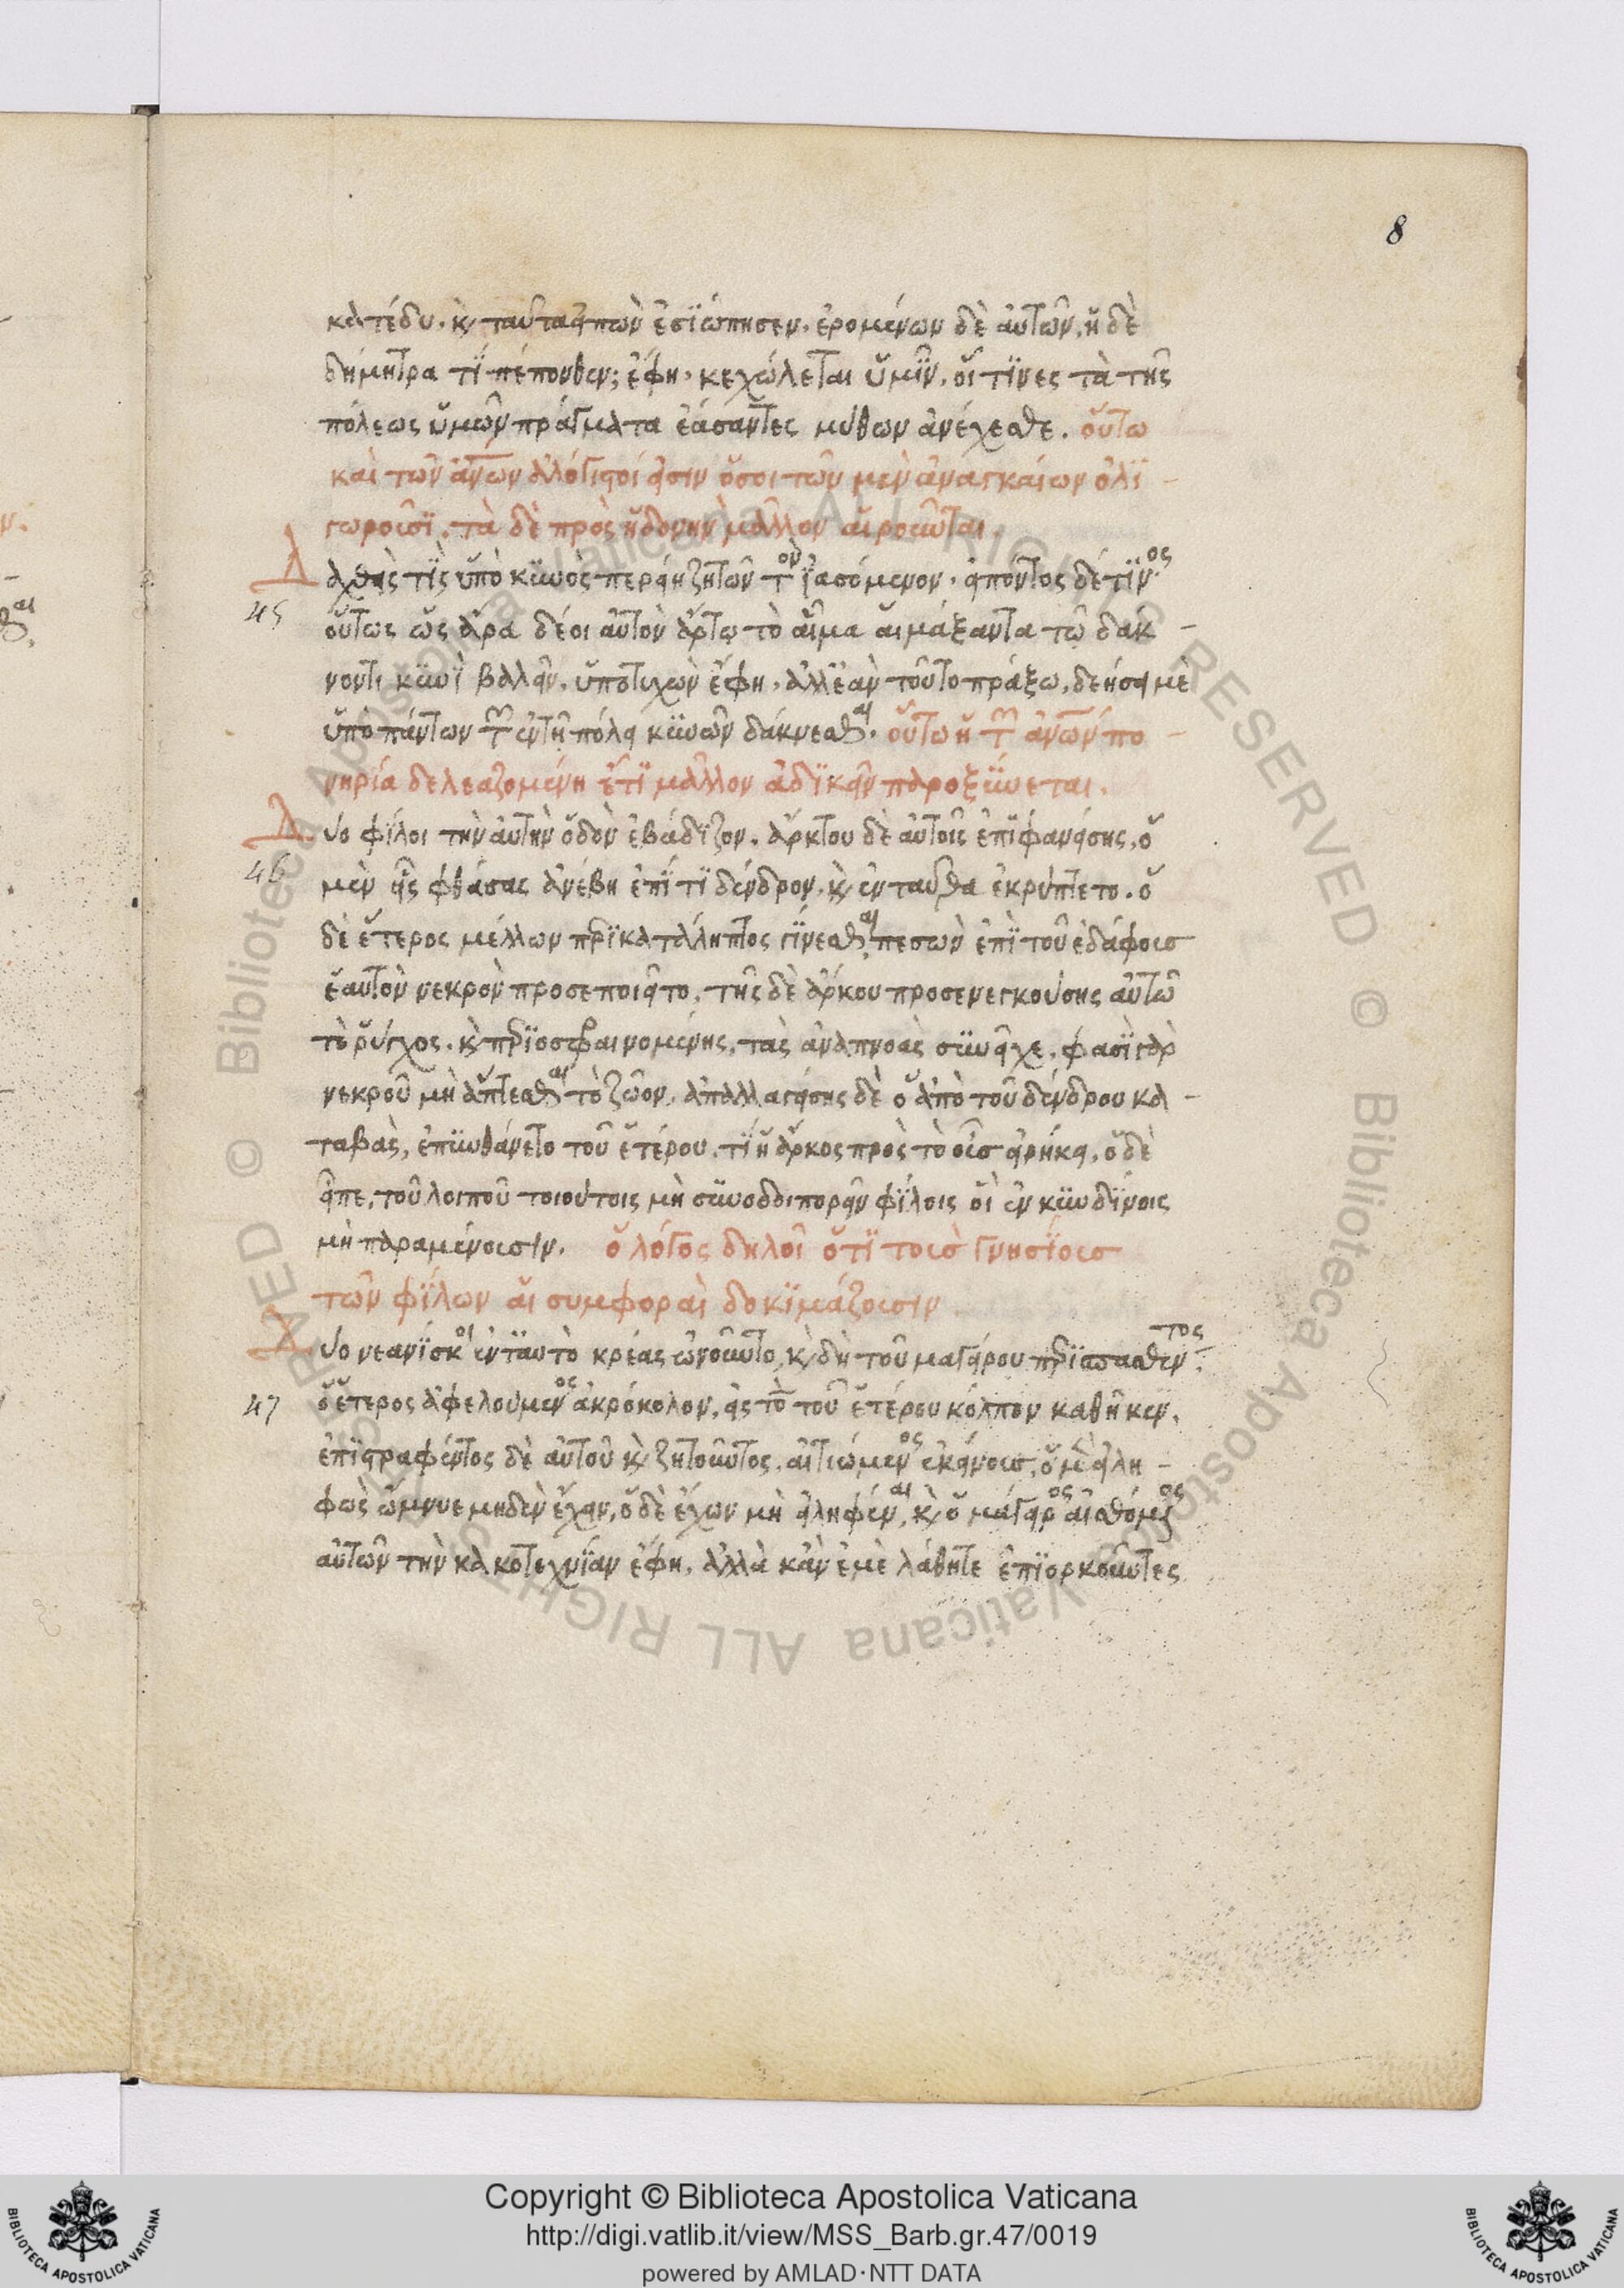 8
κατέδυ. κ̀ ταῦτα εἰπὼν ἐσϊώπησεν. ἐρομένων δὲ ἀυτῶν, ἡ δὲ
δήμητρα τΐ πέπονθεν; ἔφη. κεχώλεται ὑμῖν. οἵ τϊνες τὰ τῆς
πόλεως ὑμῶν πράγματα ἐάσαντες μύθων ἀνέχεσθε. οὕτω
καὶ τῶν ἀνων ἀλόγιστοί εἰσιν ὅσοι τῶν μὲν ἀναγκαίων ὀλϊ -
γωροῦσϊ. τὰ δὲ πρὸς ἡδονὴν μᾶλλον αἱροῦνται.
Δ αχθεὶς τῒς ὑπὸ κϋνὸς περιήει ζητῶν τὸν ϊασόμενον. εἰπόντος δέ τϊνος
45 οὕτως ὡς ἄρα δέοι αὐτὸν ἄρτῳ τὸ αἷμα αἱμάξαντα τῶ δάκ -
νοντι κϋνῒ βαλεῖν. ὑποτυχὼν ἔφη. ἀλλ' ἐὰν τοῦτο πράξω, δεήσει μὲ
ὑπὸ πάντων τῶν ἐν τῆ πόλει κϋνῶν δάκνεσθαι. οὕτω ἡ τῶν ἀνων πο -
νηρία δελεαζομένη ἔτϊ μᾶλλον ἀδϊκεῖν παροξΰνεται.
Δ ύο φΐλοι τὴν ἀυτὴν ὁδὸν ἐβάδϊζον. ἄρκτου δὲ αὐτοῖς ἐπϊφανείσης, ὁ
46 μὲν εἷς φθάσας ἀνέβη ἐπΐ τϊ δένδρον. κ̀ ἐνταῦθα ἐκρύπτετο. ὁ
δὲ ἕτερος μέλλων περϊκατάληπτος γΐνεσθαι, πεσὼν ἐπῒ τοῦ ἐδάφους
ἑαυτὸν νεκρὸν προσεποιεῖτο. τῆς δὲ ἄρκου προσενεγκούσης αὐτῶ
τὸ ρύγχος. κ̀ περϊοσφραινομένης, τὰς ἀναπνοὰς σϋνεῖχε. φασῒ γὰρ
νεκροῦ μὴ ἅπτεσθαι τὸ ζῶον. ἀπαλλαγείσης δὲ ὁ ἀπὸ τοῦ δένδρου κα -
ταβὰς, ἐπϋνθάνετο τοῦ ἑτέρου. τΐ ἡ ἄρκος πρὸς τὸ οὖς εἰρήκει. ὁ δὲ
εἶπε. τοῦ λοιποῦ τοιούτοις μὴ σϋνοδοιπορεῖν φΐλοις οἳ ἐν κϋνδΰνοις
μὴ παραμένουσιν. ὁ λόγος δηλοῖ ὅτϊ τοὺς γνησΐους
τῶν φΐλων αἱ συμφοραὶ δοκϊμάζουσιν.
Δ ύο νεανΐσκοι ἐν ταυτὸ κρέας ὠνοῦντο, κ̀ δὴ τοῦ μαγείρου περϊσπασθέντος
47 ὁ ἕτερος ἀφελούμενος ἀκρόκολον, εἰς τὸν τοῦ ἑτέρου κόλπον καθῆκεν.
ἐπϊστραφέντος δὲ αὐτοῦ κ̀ ζητοῦντος. αἰτιώμενος ἐκείνους, ὁ μὲν εἰλη -
φὼς ὤμνυε μηδὲν ἔχειν, ὁ δὲ ἔχων μὴ εἰληφέναι, κ̀ ὁ μάγειρος αἰσθόμενος
αὐτῶν τὴν κακοτεχνΐαν ἔφη. ἀλλὰ κἂν ἐμὲ λάθητε ἐπϊορκοῦντες
Copyright © Biblioteca Apostolica Vaticana
http://digi.vatlib.it/view/MSS_Barb.gr.47/0019
powered by AMLAD·NTT DATA